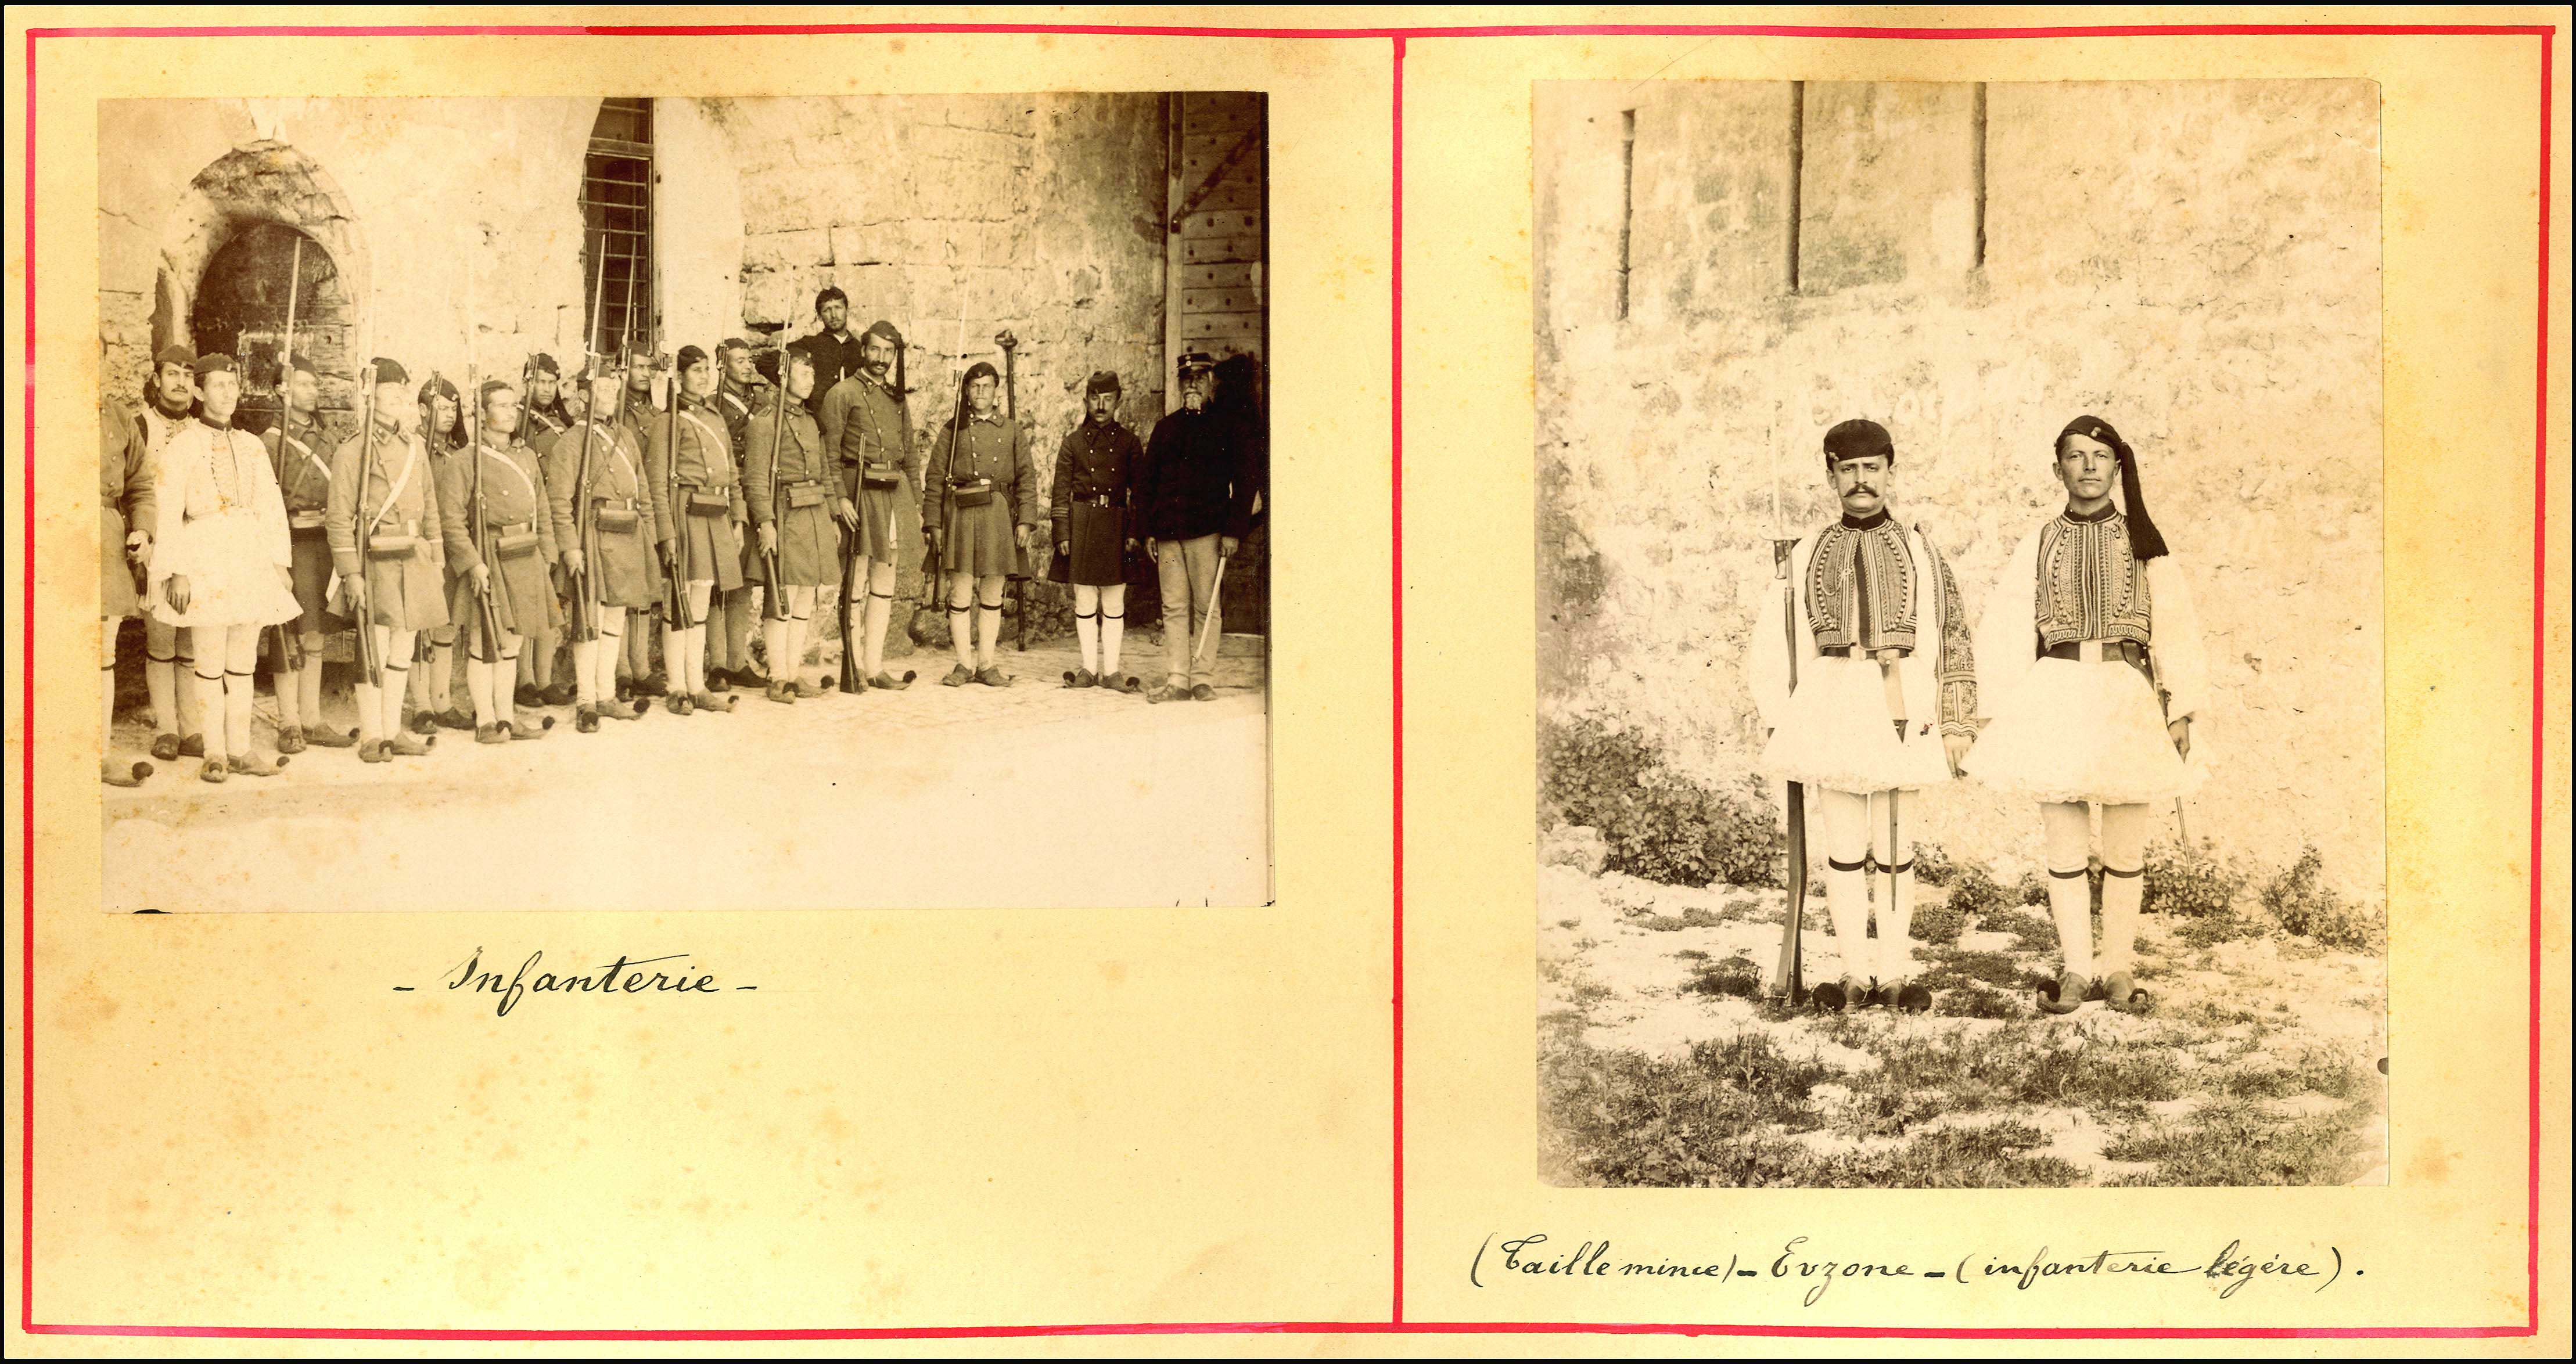 - Infanterie -
(Taille mince) - Evzone - (infanterie légère).